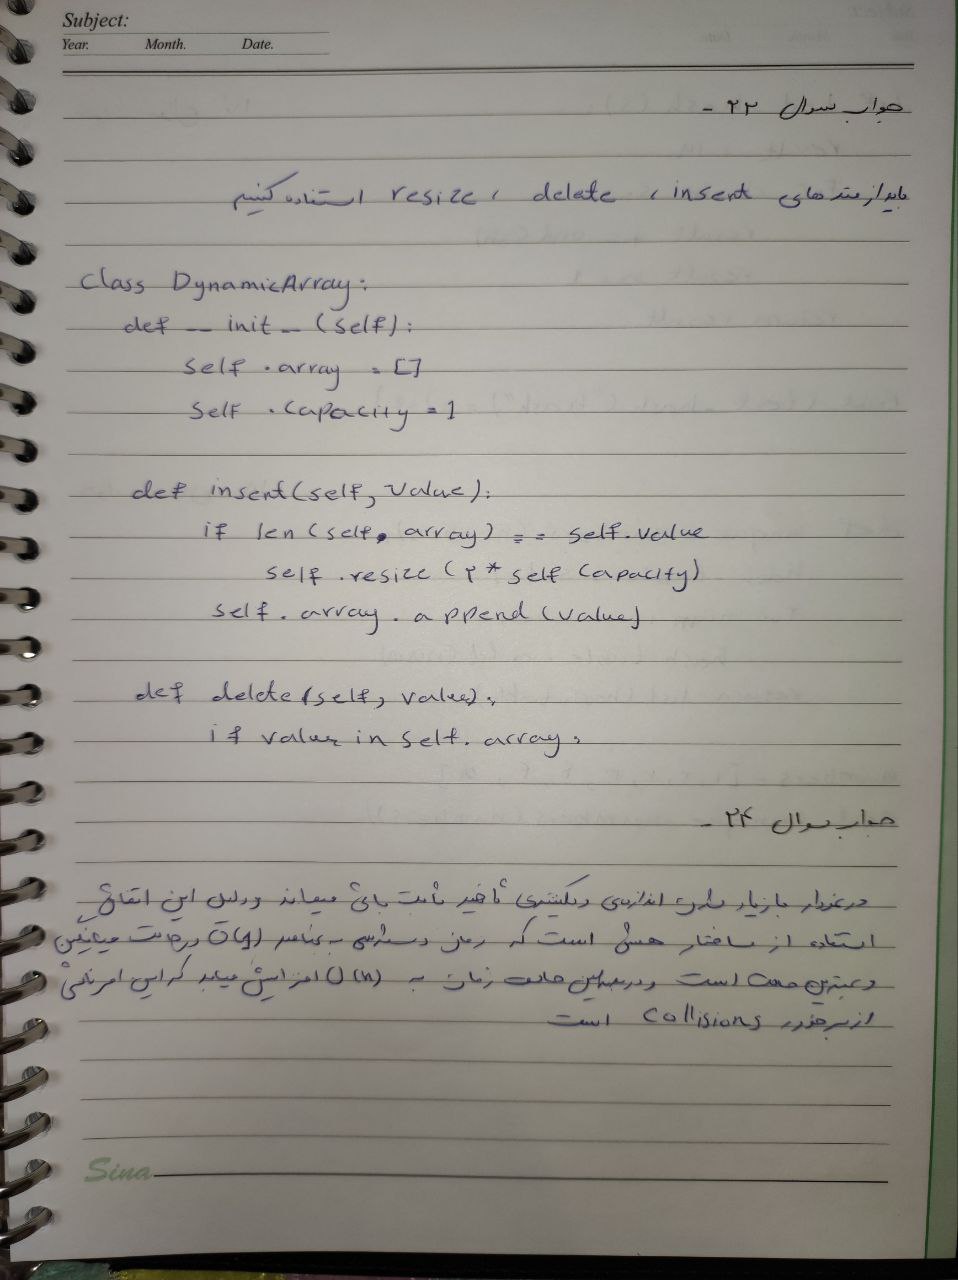 Subject:
Year. Month. Date.
جواب سوال ۲۲ -
باید از متد های insert ، delete ، resize استفاده کنیم
class DynamicArray:
def __init__(self):
self.array = []
self.capacity = 1
def insert(self, value):
if len(self.array) == self.value
self.resize(۲* self capacity)
self.array.append(value)
def delete(self, value):
if value in self.array:
جواب سوال ۲۴ -
در نمودار با زیاد شدن اندازه‌ی دیکشنری تأخیر ثابت باقی میماند و دلیل این اتفاق
استفاده از ساختار هش است که زمان دسترسی به عناصر O(1) در حالت میانگین
و بهترین حالت است و در بدترین حالت زمان به O(n) افزایش میابد که این امر ناشی
از برخورد collisions است
Sina